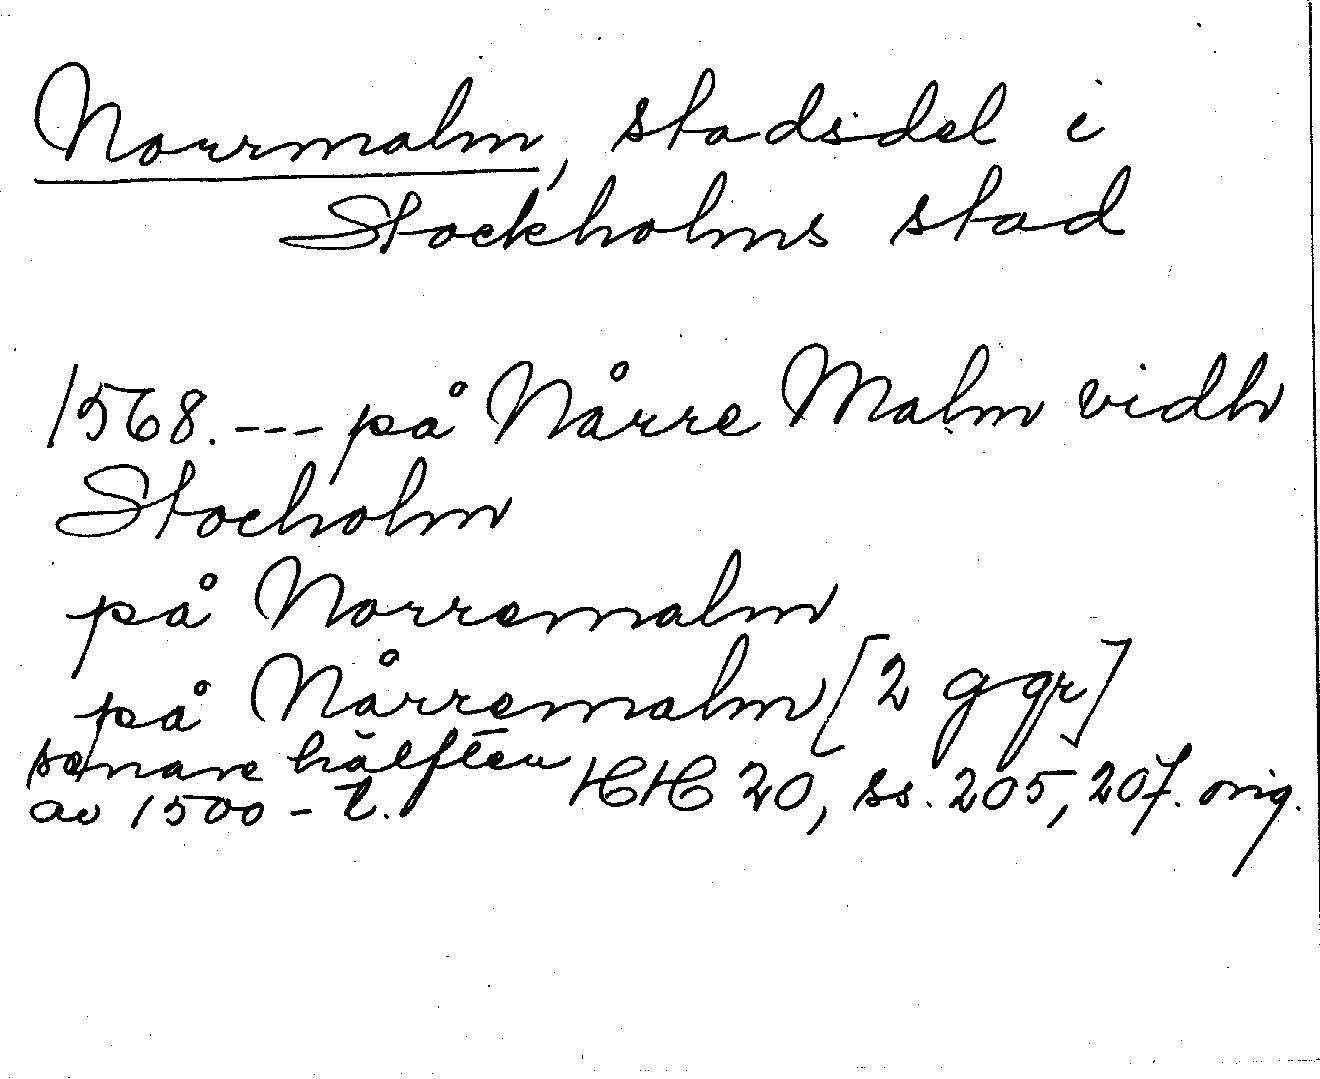 Norrmalm, stadsdel i
Stockholms stad
1568. --- på Nårre Malm vidh
Stocholm
på Norremalm
på Nårremalm [2 ggr]
senare hälften
av 1500-t. HH 20, ss. 205, 207. orig.